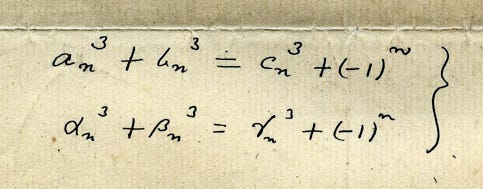 aₙ³ + bₙ³ = cₙ³ + (-1)ⁿ
αₙ³ + βₙ³ = γₙ³ + (-1)ⁿ }